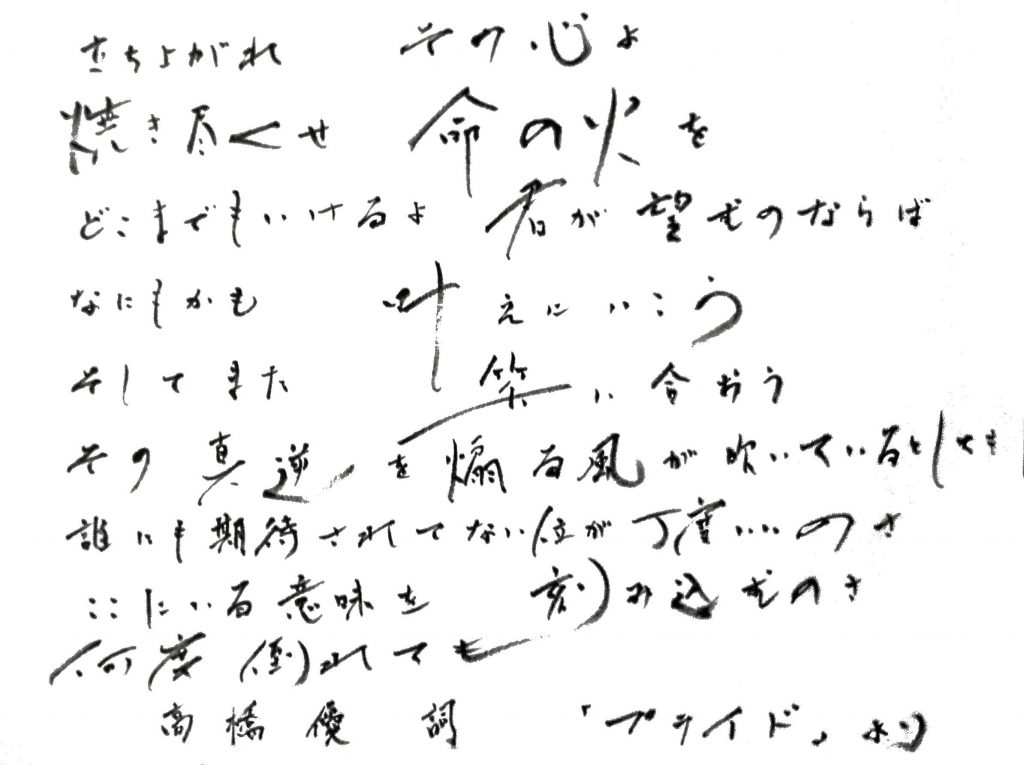 立ち上がれ その心よ
焼き尽くせ 命の火を
どこまでもいけるよ 君が望むのならば
なにもかも 叶えにいこう
そしてまた 笑い合おう
その真逆を煽る風が吹いているとしても
誰にも期待されてない位が丁度いいのさ
ここにいる意味を 刻み込むのさ
何度倒れても
高橋優 詞 「プライド」より